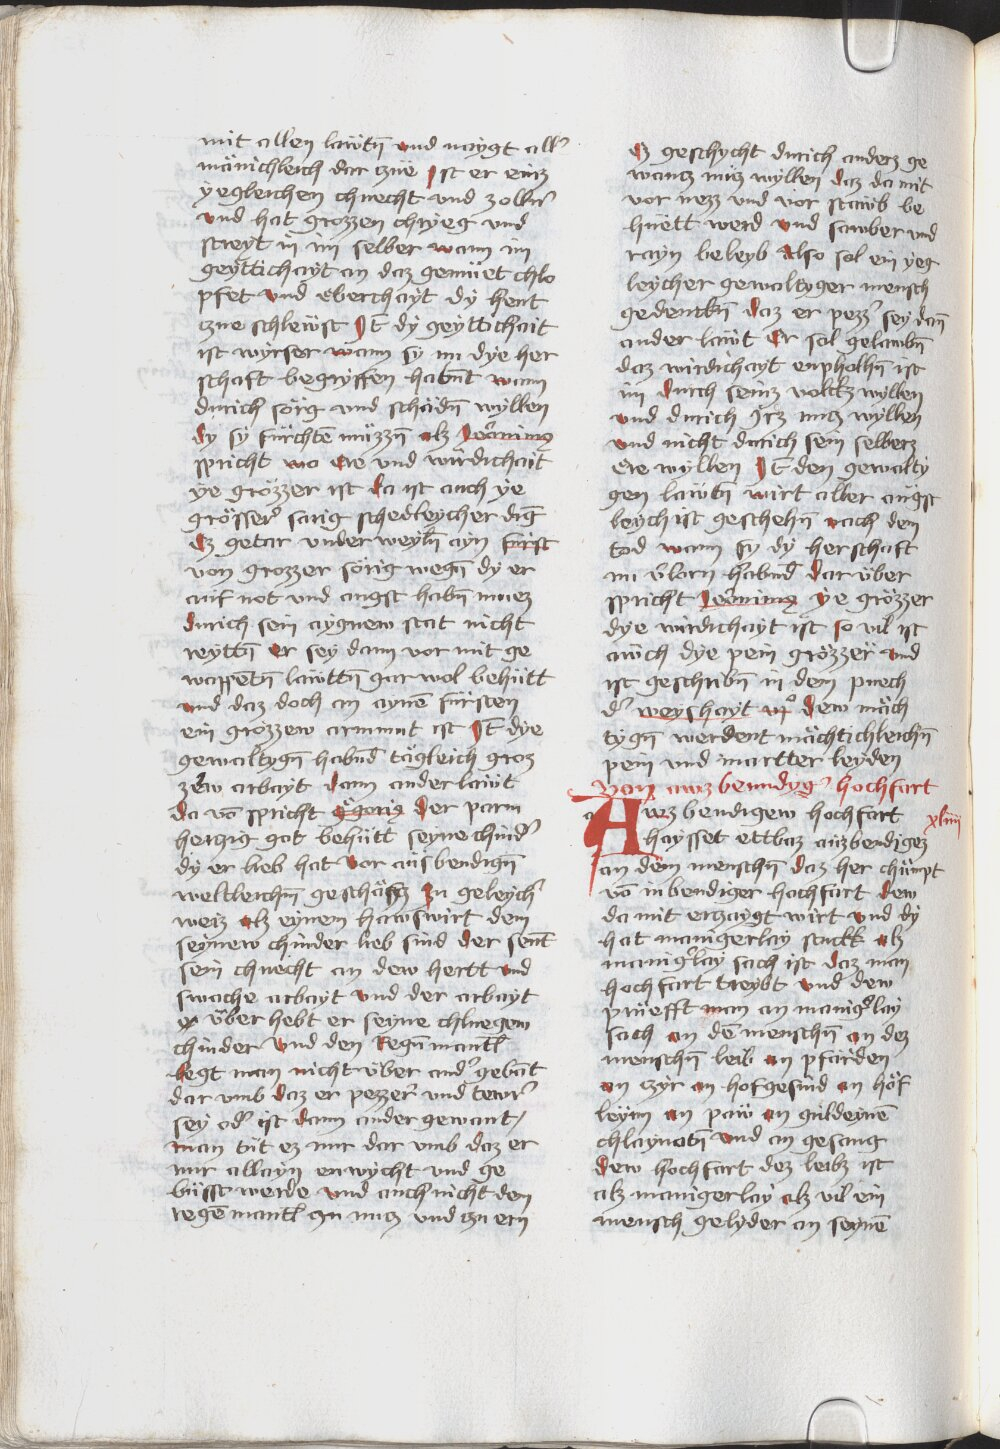 mit allen lawtn̄ und naygt all'
mänichleich dar czüe Ist er einz
yegleichen chnecht vnd zolln'
vnd hat grozzen chryeg vnd
streyt in im selber wann im
geyttichayt an daz gemüet chlo
pfet vnd eberthayt dy hent
czue schlewst It̄ dy geyttichait
ist wyrser wann sy in dye her
schaft begryffen habnt wann
durich sorig vnd schadn̄ wyllen
dy sy fürchten müzzn̄ alz Jeronimus
spricht wo ere vnd wirdichait
ye grözzer ist da ist auch ye
grösser' sarig schedleycher ding
Ez getar vnder weyln̄ ayn fürst
von grozzer sörig wegn̄ dy er
auf not vnd angst habn̄ muez
durich sein aygnew stat nicht
reyttn̄ er sey dann vor mit ge
wappetn̄ lawttn̄ gar wol behütt
vnd daz doch an aynē fürsten
ein grözzew armmut ist It̄ dye
gewaltygn̄ habnd tägleich groz
zew arbayt dann ander lawt
da vō spricht Gregorius Der parm
herczig got behütt seyne chind'
dy er lieb hat vor ausbendign̄
weltleichn̄ geschäfftz In geleych'
weiz alz eynem hawswirt dem
seynew chinder lieb sind der sent
sein chnecht an dew hertt vnd
swache arbayt vnd der arbayt
über hebt er seyne chluegew
chinder Vnd den Regn̄mantl̄
legt man nicht über and' gebāt
dar vmb daz er pezzer vnd tewr'
sey od' ist dann ander gewant /
man tüt ez nur dar vmb daz er
nur allayn enwycht vnd ge
büsst werde vnd auch nicht den
regēmantl̄ zu nucz vnd czu ern
Ez geschycht durich anderz ge
wancz nucz wyllen daz da mit
vor nezz vnd vor stawb be
huett werd vnd sawber vnd
rayn beleyb Also sol ein yeg
leycher gewaltyger mensch
gedenckn̄ daz er pezz' sey dan̄
ander lawt Er sol gelawbn̄
daz wirdichayt enpholhn̄ ist
im durch seinz volckz wyllen
vnd durich Jrz nucz wyllen
vnd nicht durich sein selberz
ere wyllen It̄ den gewalty
gen lawtn̄ wirt aller angst
leychist geschehn̄ nach dem
tod wann sy dy herschaft
nu v'lorn habnd dar über
spricht Jeronimus ye grözzer
dye wirdichayt ist so vil ist
auch dye pein grözzer vnd
ist geschribn̄ in dem puech
d' weyshayt vj° dew mäch
tygn̄ werdent mächtichleichn̄
pein vnd martter leyden
Von auzbenndyg' hochfart
Awzbendigew hochfart xliiij
haysset ettbaz auzbendigez
an dem menschn̄ daz her chümpt
vō inbendiger hochfart dew
da mit erczaygt wirt vnd dy
hat manigerlay stuckk alz
manig'lay sach ist daz man
hochfart treybt vnd dew
prüefft man an manig'lay
sach an dē menschn̄ an dez
menschn̄ leib an pfärden
an czyr an hofgesind an höf
leyнn an paw an guldeynē
chlaynatn̄ vnd an gesang
Dew hochfart dez leibz ist
alz manigerlay alz vil ein
mensch gelyder an seynē